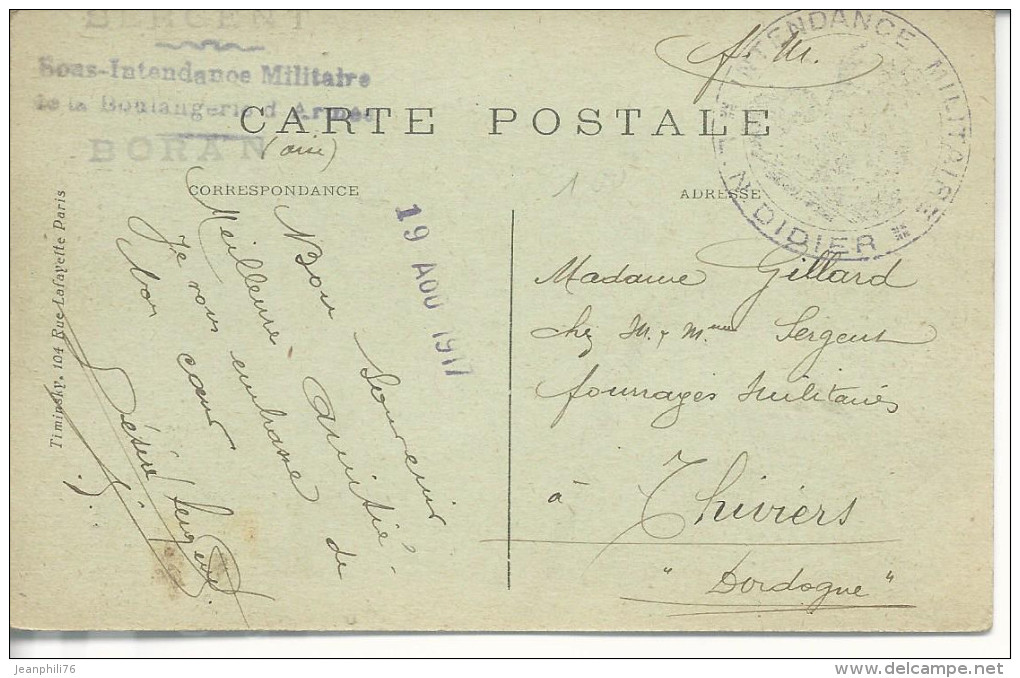 SERGENT
Sous-Intendance Militaire
de la Boulangerie d'Armée
BORAN
(oise)
F. M.
INTENDANCE MILITAIRE
DIDIER
CARTE POSTALE
CORRESPONDANCE
ADRESSE
19 AOU 1917
Bon Souvenir
Meilleure amitié
Je vous embrasse de
bon cœur
Désiré Sergent
Timinsky, 104 Rue Lafayette Paris
Madame Gillard
chez M. & Mme Sergent
fourrages Militaires
à Thiviers
"Dordogne"
jeanphili76
www.delcampe.net